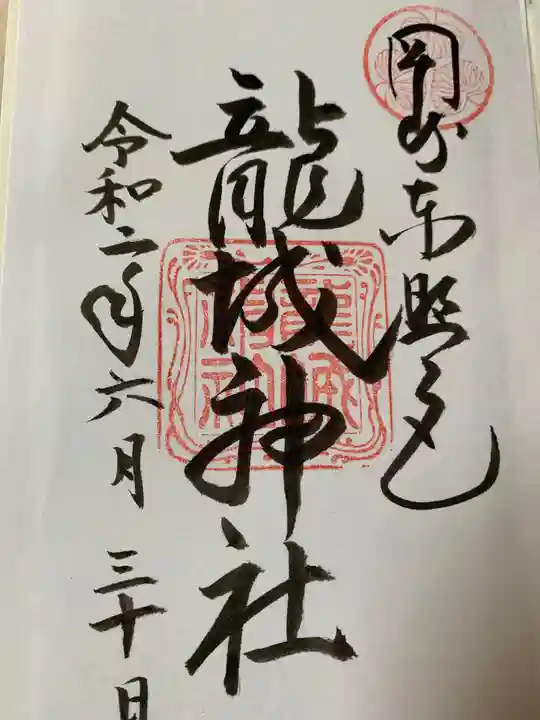 岡崎東照宮
龍城神社
令和二年六月三十日
龍城神社